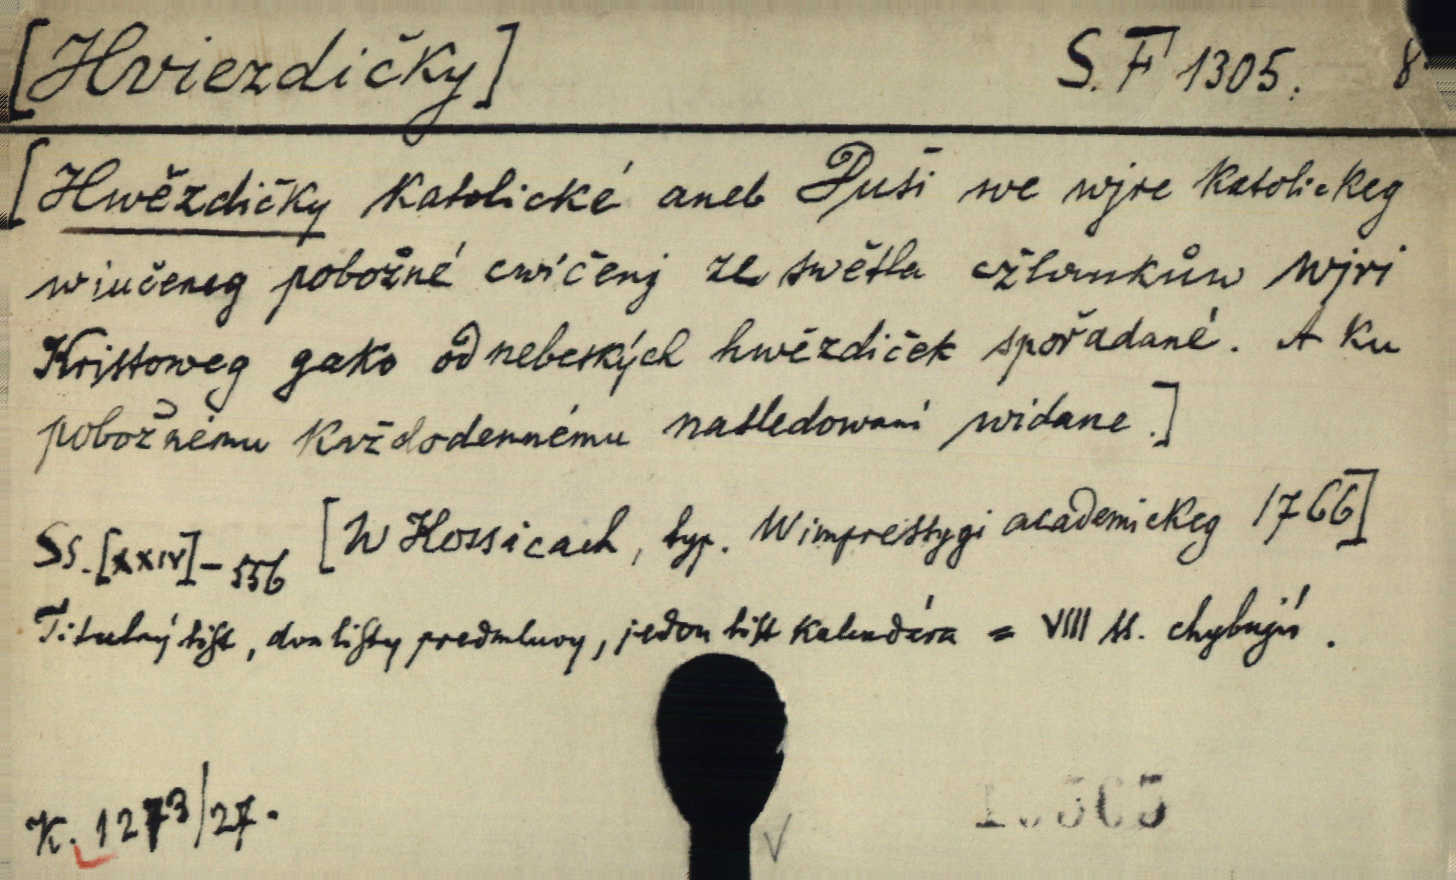 [Hviezdičky] S. F 1305. 8°
[Hwězdičky katolické aneb Duši we wjre katolickeg
wiučeneg pobožné cwičenj ze swětla cžlankůw Wjri
Kristoweg gako od nebeských hwězdiček spořadané. A ku
pobožnému každodennému nasledowani widane.]
Ss. [XXIV]-556 [W Kossicach, typ. W impressygi academickeg 1766]
Titulný list, dva listy predmluvy, jedon list kalendára = VIII ss. chybujú.
K. 1273/27.